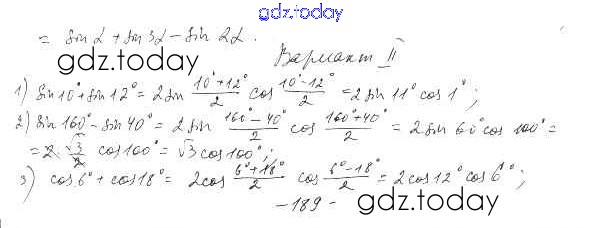 gdz.today
= sin α + sin 3α − sin 2α.
gdz.today
Вариант II
1) sin 10° + sin 12° = 2 sin (10°+12°)/2 cos (10°−12°)/2 = 2 sin 11° cos 1°;
2) sin 160° − sin 40° = 2 sin (160°−40°)/2 cos (160°+40°)/2 = 2 sin 60° cos 100° =
= 2·√3/2 cos 100° = √3 cos 100°;
3) cos 6° + cos 18° = 2 cos (6°+18°)/2 cos (6°−18°)/2 = 2 cos 12° cos 6°;
- 189 -
gdz.today